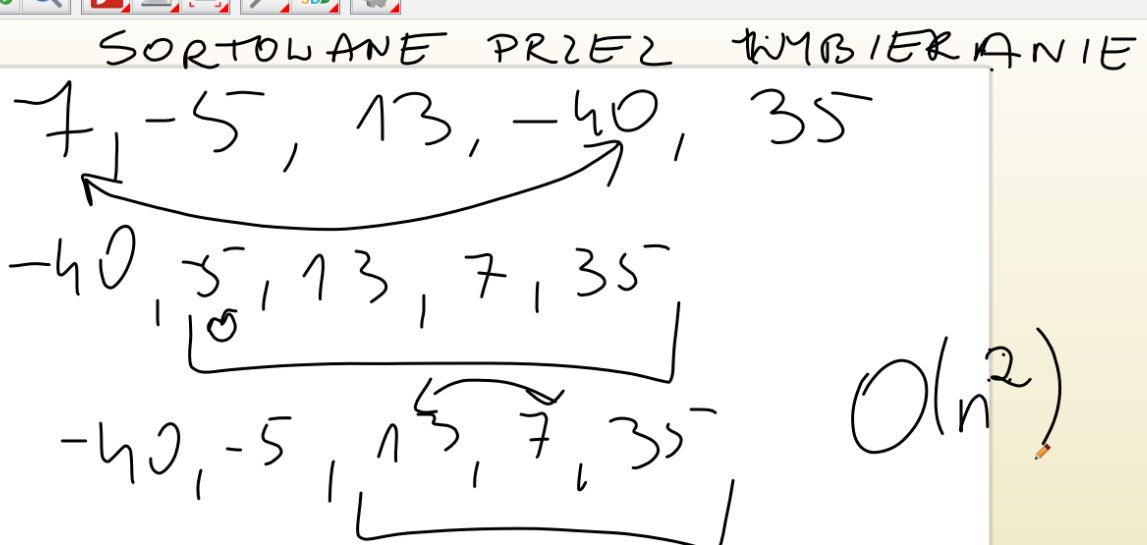 SORTOWANE PRZEZ WYBIERANIE
7, -5, 13, -40, 35
-40, -5, 13, 7, 35
O(n²)
-40, -5, 13, 7, 35